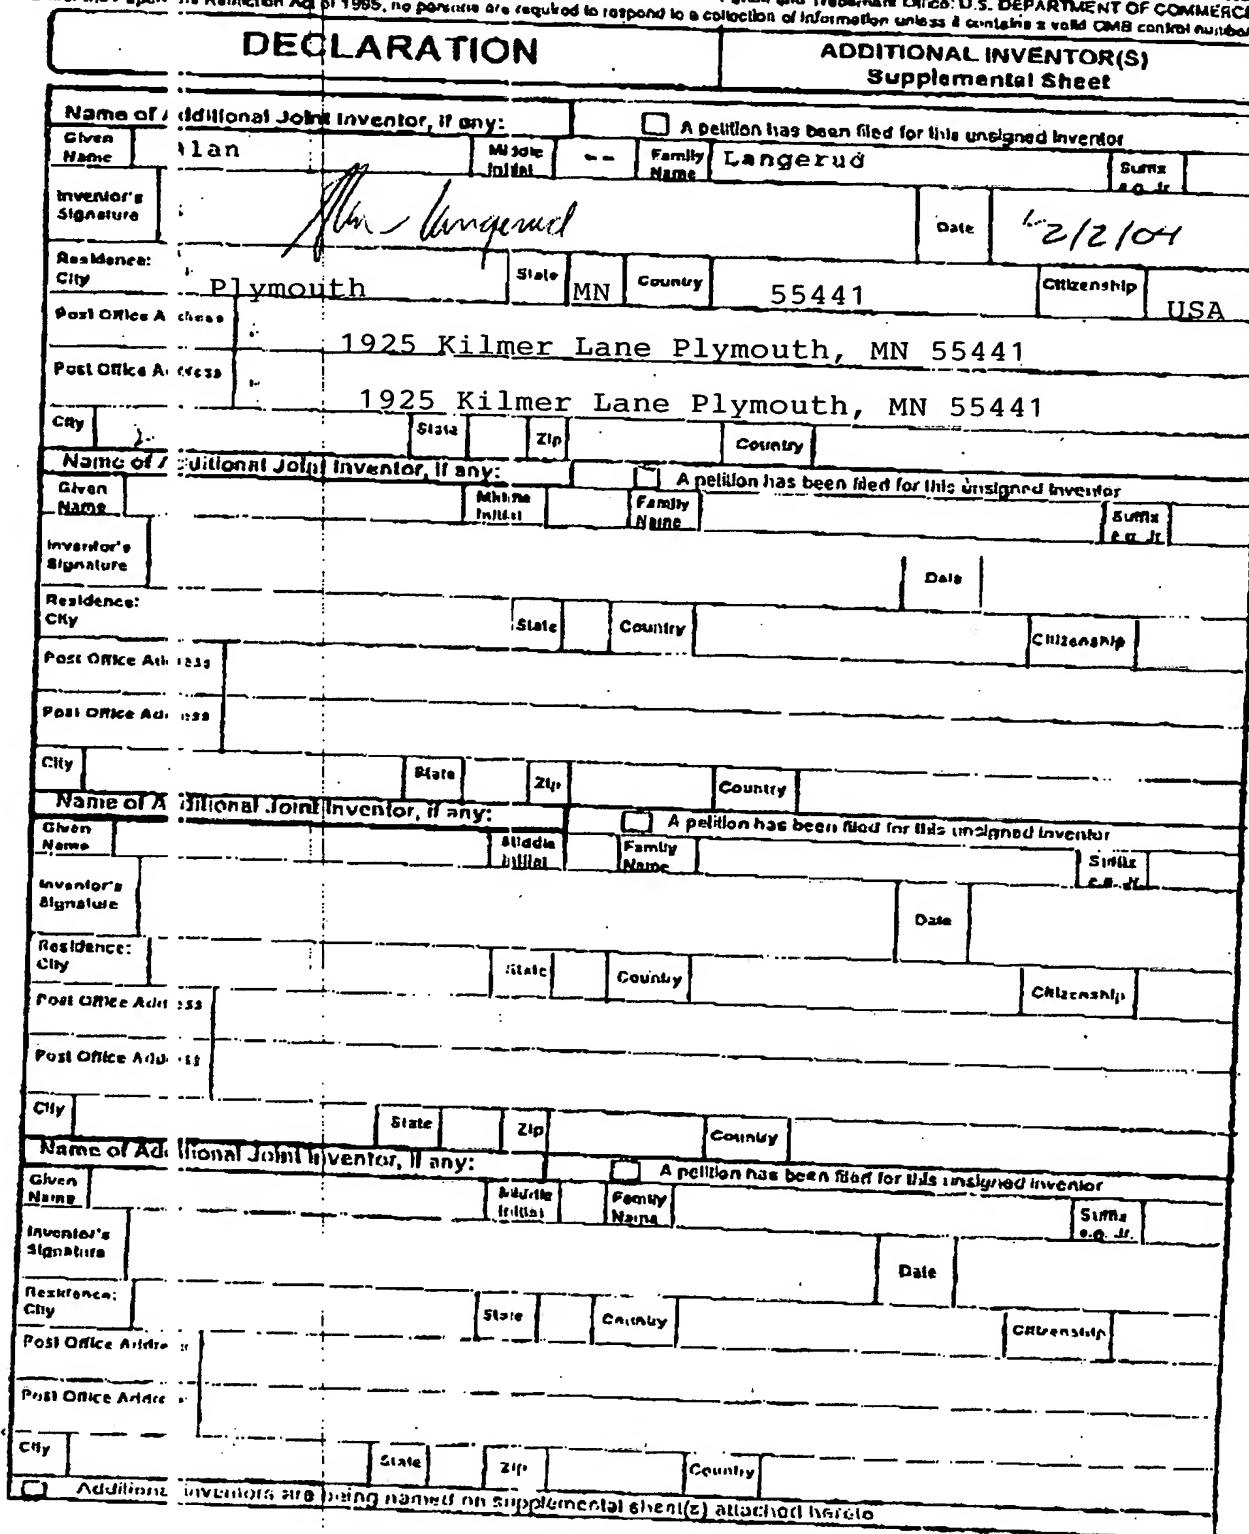 Reduction Act of 1995, no persons are required to respond to a collection of information unless it contains a valid OMB control number
U.S. DEPARTMENT OF COMMERCE
DECLARATION
ADDITIONAL INVENTOR(S)
Supplemental Sheet
Name of Additional Joint Inventor, if any:
A petition has been filed for this unsigned inventor
Given Name
Alan
Middle Initial
--
Family Name
Langerud
Suffix e.g. Jr.
Inventor's Signature
Alan Langerud
Date
2/2/04
Residence: City
Plymouth
State
MN
Country
55441
Citizenship
USA
Post Office Address
1925 Kilmer Lane Plymouth, MN 55441
Post Office Address
1925 Kilmer Lane Plymouth, MN 55441
City
State
Zip
Country
Name of Additional Joint Inventor, if any:
A petition has been filed for this unsigned inventor
Given Name
Middle Initial
Family Name
Suffix e.g. Jr.
Inventor's Signature
Date
Residence: City
State
Country
Citizenship
Post Office Address
Post Office Address
City
State
Zip
Country
Name of Additional Joint Inventor, if any:
A petition has been filed for this unsigned inventor
Given Name
Middle Initial
Family Name
Suffix e.g. Jr.
Inventor's Signature
Date
Residence: City
State
Country
Citizenship
Post Office Address
Post Office Address
City
State
Zip
Country
Name of Additional Joint Inventor, if any:
A petition has been filed for this unsigned inventor
Given Name
Middle Initial
Family Name
Suffix e.g. Jr.
Inventor's Signature
Date
Residence: City
State
Country
Citizenship
Post Office Address
Post Office Address
City
State
Zip
Country
Additional inventors are being named on supplemental sheet(s) attached hereto